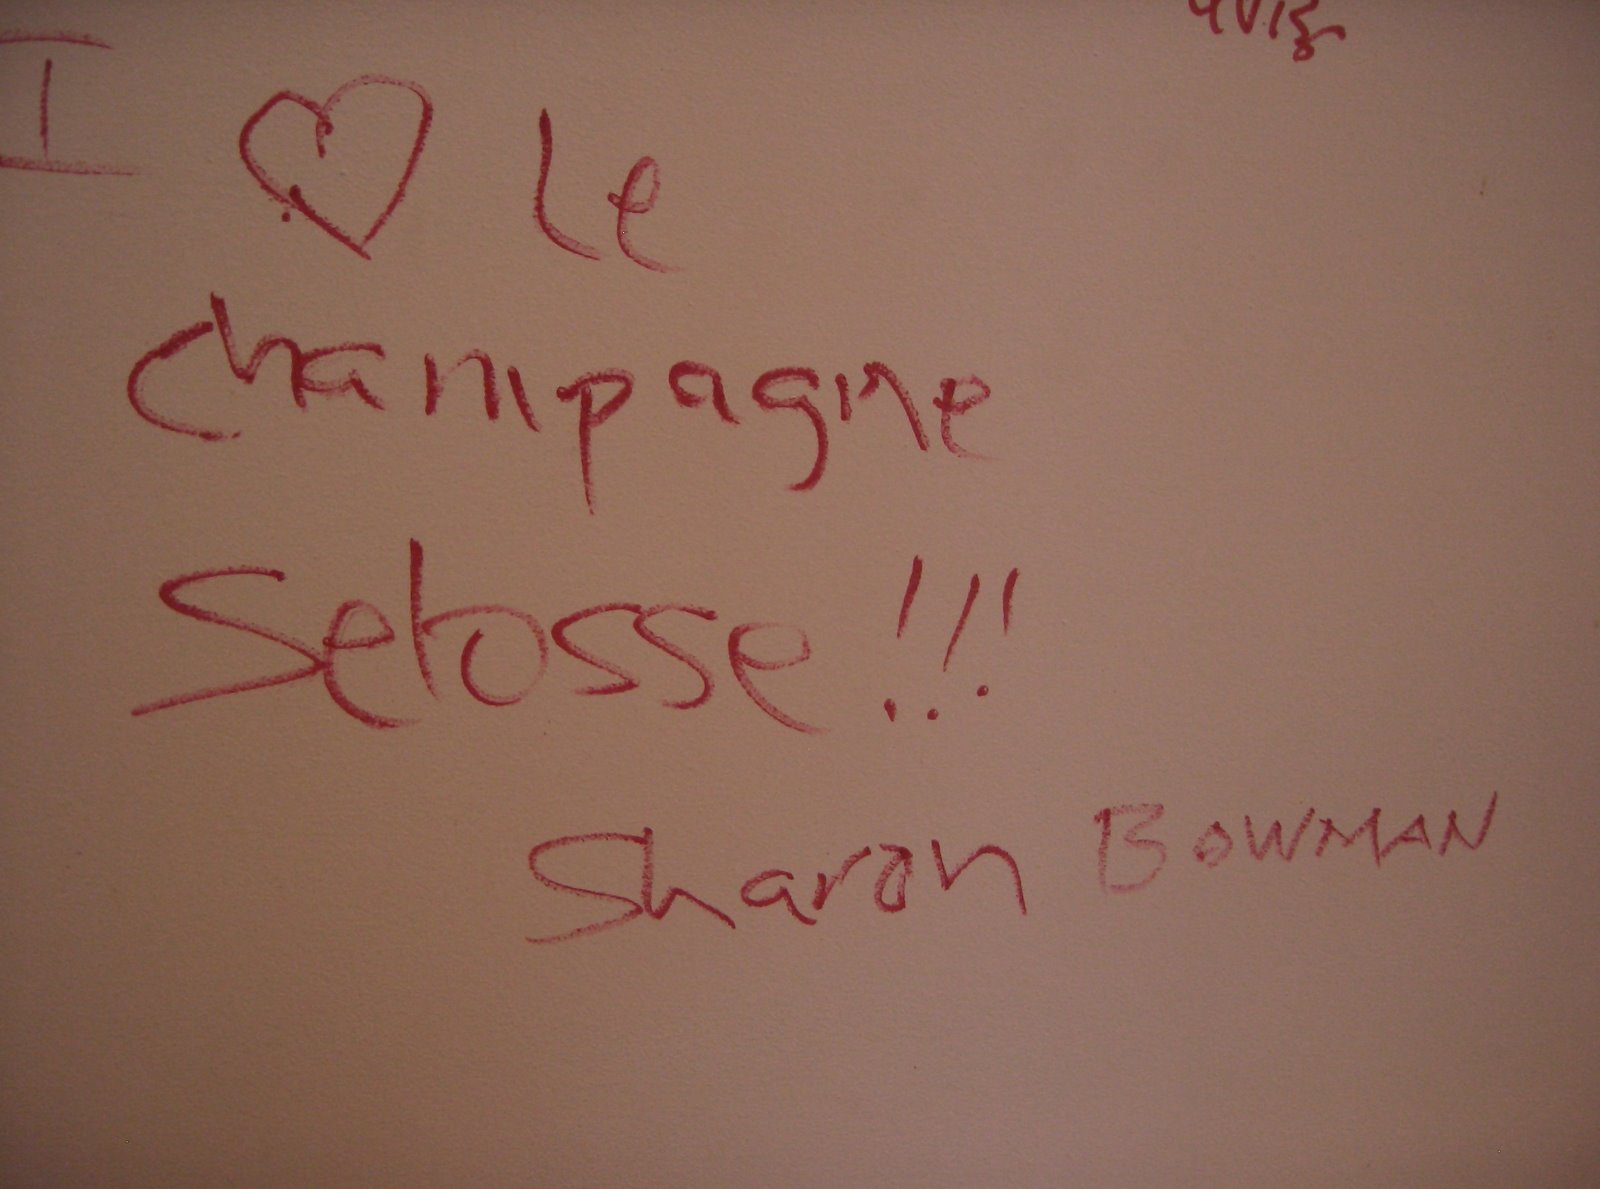 I ♡ Le
champagne
Selosse!!!
Sharon BOWMAN